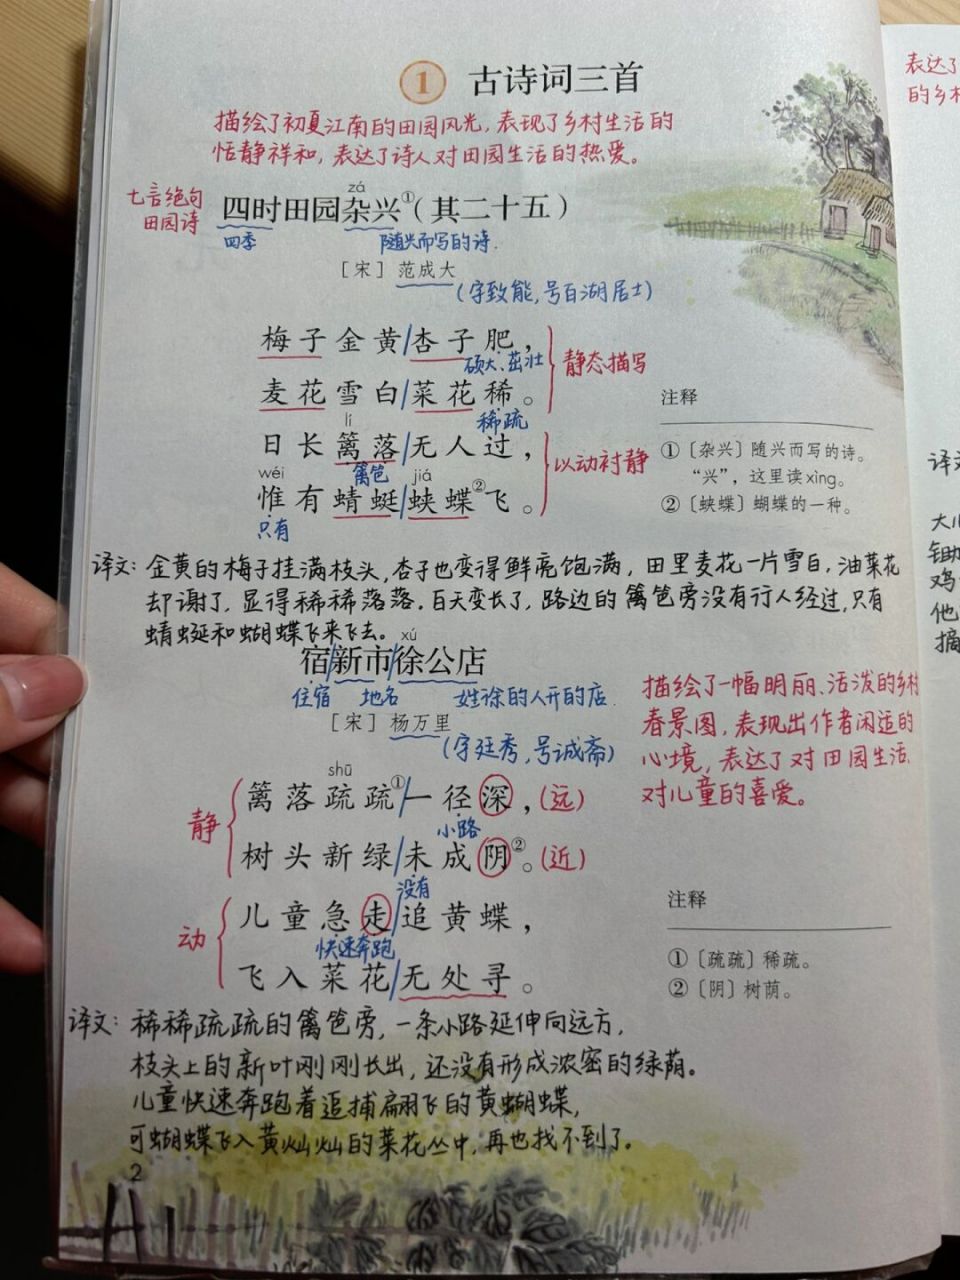 1 古诗词三首
描绘了初夏江南的田园风光,表现了乡村生活的
恬静祥和,表达了诗人对田园生活的热爱。
七言绝句
田园诗
zá
四时田园杂兴①(其二十五)
四季 随兴而写的诗.
[宋] 范成大
(字致能,号百湖居士)
梅子金黄/杏子肥,
硕大、茁壮
静态描写
麦花雪白/菜花稀。
稀疏
lí
日长篱落/无人过,
篱笆
以动衬静
wéi jiá
惟有蜻蜓/蛱蝶②飞。
只有
注释
①〔杂兴〕随兴而写的诗。
“兴”,这里读xìng。
②〔蛱蝶〕蝴蝶的一种。
译文:金黄的梅子挂满枝头,杏子也变得鲜亮饱满,田里麦花一片雪白,油菜花
却谢了,显得稀稀落落。白天变长了,路边的篱笆旁没有行人经过,只有
蜻蜓和蝴蝶飞来飞去。
xú
宿/新市/徐公店
住宿 地名 姓徐的人开的店.
[宋] 杨万里
(字廷秀,号诚斋)
描绘了一幅明丽、活泼的乡村
春景图,表现出作者闲适的
心境,表达了对田园生活、
对儿童的喜爱。
静
shū
篱落疏疏①/一径深,(远)
小路
树头新绿/未成阴②。(近)
没有
动
儿童急走/追黄蝶,
快速奔跑
飞入菜花/无处寻。
注释
①〔疏疏〕稀疏。
②〔阴〕树荫。
译文:稀稀疏疏的篱笆旁,一条小路延伸向远方,
枝头上的新叶刚刚长出,还没有形成浓密的绿荫。
儿童快速奔跑着追捕翩飞的黄蝴蝶,
可蝴蝶飞入黄灿灿的菜花丛中,再也找不到了。
2
表达了
的乡村
译文
大儿
锄
鸡
他
摘